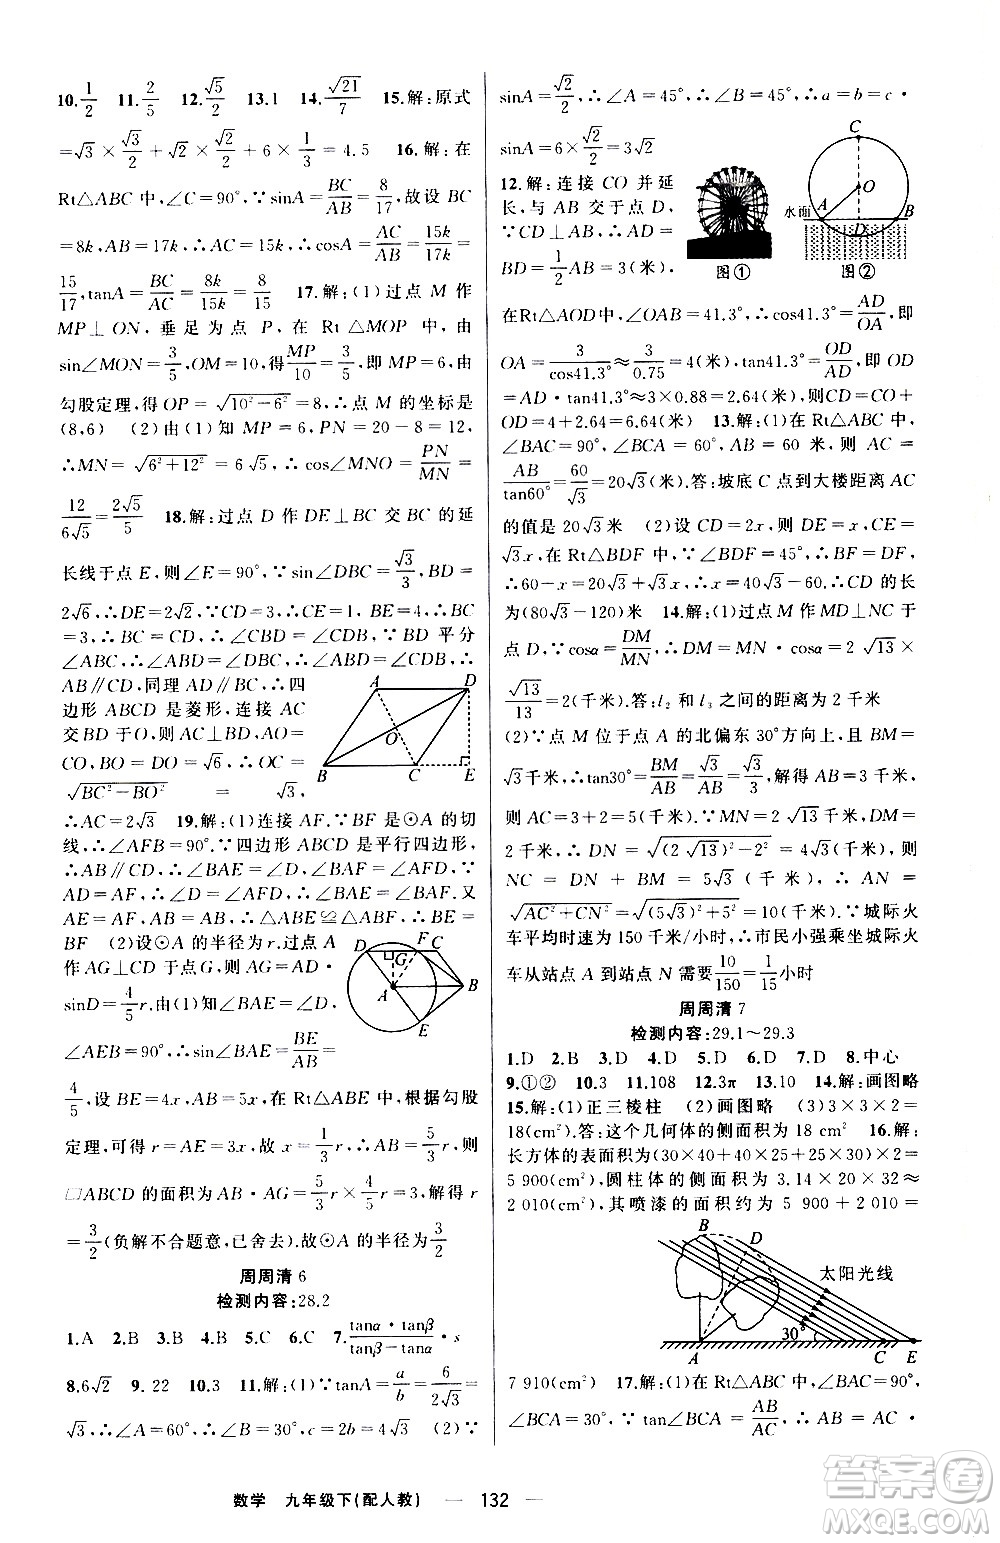 10.1/2 11.2/5 12.√5/2 13.1 14.√21/7 15.解:原式
=√3×√3/2+√2×√2/2+6×1/3=4.5 16.解:在
Rt△ABC中,∠C=90°,∵sinA=BC/AB=8/17,故设BC
=8k,AB=17k,∴AC=15k,∴cosA=AC/AB=15k/17k=
15/17,tanA=BC/AC=8k/15k=8/15 17.解:(1)过点M作
MP⊥ON,垂足为点P,在Rt△MOP中,由
sin∠MON=3/5,OM=10,得MP/10=3/5,即MP=6,由
勾股定理,得OP=√(10²-6²)=8,∴点M的坐标是
(8,6) (2)由(1)知MP=6,PN=20-8=12,
∴MN=√(6²+12²)=6√5,∴cos∠MNO=PN/MN=
12/6√5=2√5/5 18.解:过点D作DE⊥BC交BC的延
长线于点E,则∠E=90°,∵sin∠DBC=√3/3,BD=
2√6,∴DE=2√2,∵CD=3,∴CE=1,BE=4,∴BC
=3,∴BC=CD,∴∠CBD=∠CDB,∵BD平分
∠ABC,∴∠ABD=∠CBD,∴∠ABD=∠CDB,∴
AB∥CD,同理AD∥BC,∴四
边形ABCD是菱形,连接AC
交BD于O,则AC⊥BD,AO=
CO,BO=DO=√6,∴OC=
√(BC²-BO²) = √3,
∴AC=2√3 19.解:(1)连接AF.∵BF是⊙A的切
线,∴∠AFB=90°.∵四边形ABCD是平行四边形,
∴AD∥BC,∴∠BAE=∠D,∠DAF=∠AFB.又
∵AD=AF,∴∠D=∠AFD,∴∠BAE=∠BAF.又
AE=AF,AB=AB,∴△ABE≌△ABF,∴BE=
BF (2)设⊙A的半径为r,过点A
作AG⊥CD于点G,则AG=AD·
sinD=4/5r,由(1)知∠BAE=∠D,
∠AEB=90°,∴sin∠BAE=BE/AB=
4/5,设BE=4x,AB=5x,在Rt△ABE中,根据勾股
定理,可得r=AE=3x,故x=1/3r,∴AB=5/3r,则
□ABCD的面积为AB·AG=5/3r×4/5r=3,解得r
=3/2(负解不合题意,已舍去).故⊙A的半径为3/2
A
D
O
B
C
E
D
F
C
G
A
B
E
周周清6
检测内容:28.2
1.A 2.B 3.B 4.B 5.C 6.C 7.tanα·tanβ/(tanβ-tanα)·s
8.6√2 9.22 10.3 11.解:(1)∵tanA=a/b=6/2√3=
√3,∴∠A=60°,∴∠B=30°,c=2b=4√3 (2)∵
sinA=√2/2,∴∠A=45°,∴∠B=45°,∴a=b=c·
sinA=6×√2/2=3√2
12.解:连接CO并延
长,与AB交于点D,
∵CD⊥AB,∴AD=
BD=1/2AB=3(米),
C
O
水面
A
B
D
图①
图②
在Rt△AOD中,∠OAB=41.3°,∴cos41.3°=AD/OA,即
OA=3/cos41.3°≈3/0.75=4(米),tan41.3°=OD/AD,即OD
=AD·tan41.3°≈3×0.88=2.64(米),则CD=CO+
OD=4+2.64=6.64(米) 13.解:(1)在Rt△ABC中,
∠BAC=90°,∠BCA=60°,AB=60米,则AC=
AB/tan60°=60/√3=20√3(米).答:坡底C点到大楼距离AC
的值是20√3米 (2)设CD=2x,则DE=x,CE=
√3x,在Rt△BDF中,∵∠BDF=45°,∴BF=DF,
∴60-x=20√3+√3x,∴x=40√3-60.∴CD的长
为(80√3-120)米 14.解:(1)过点M作MD⊥NC于
点D,∵cosα=DM/MN,∴DM=MN·cosα=2√13×
√13/13=2(千米).答:l₂和l₃之间的距离为2千米
(2)∵点M位于点A的北偏东30°方向上,且BM=
√3千米,∴tan30°=BM/AB=√3/AB=√3/3,解得AB=3(千米),
则AC=3+2=5(千米),∵MN=2√13(千米),DM=
2千米,∴DN=√((2√13)²-2²)=4√3(千米),则
NC=DN+BM=5√3(千米),∴AN=
√(AC²+CN²)=√((5√3)²+5²)=10(千米).∵城际火
车平均时速为150千米/小时,∴市民小强乘坐城际火
车从站点A到站点N需要10/150=1/15小时
周周清7
检测内容:29.1~29.3
1.D 2.B 3.D 4.D 5.D 6.D 7.D 8.中心
9.①② 10.3 11.108 12.3π 13.10 14.解:画图略
15.解:(1)正三棱柱 (2)画图略 (3)3×3×2=
18(cm²).答:这个几何体的侧面积为18cm² 16.解:
长方体的表面积为(30×40+40×25+25×30)×2=
5 900(cm²),圆柱体的侧面积为3.14×20×32≈
2 010(cm²),其喷漆的面积约为5 900+2 010=
B
D
太阳光线
30°
A
C
E
7 910(cm²) 17.解:(1)在Rt△ABC中,∠BAC=90°,
∠BCA=30°,∵tan∠BCA=AB/AC,∴AB=AC·
数学 九年级下(配人教) — 132 —
答案圈
MXQE.COM